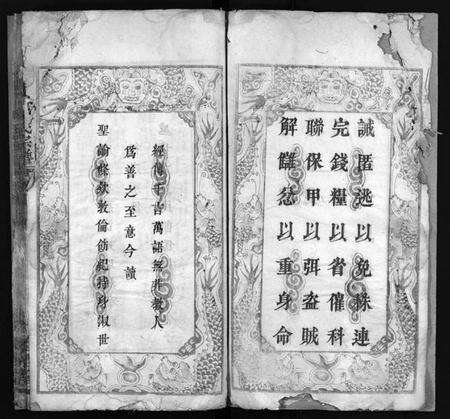 誡匿逃以免株連
完錢糧以省催科
聯保甲以弭盜賊
解讎忿以重身命
經傳千言萬語無非教人
為善之至意今讀
聖諭條欵敦倫飭紀持身淑世